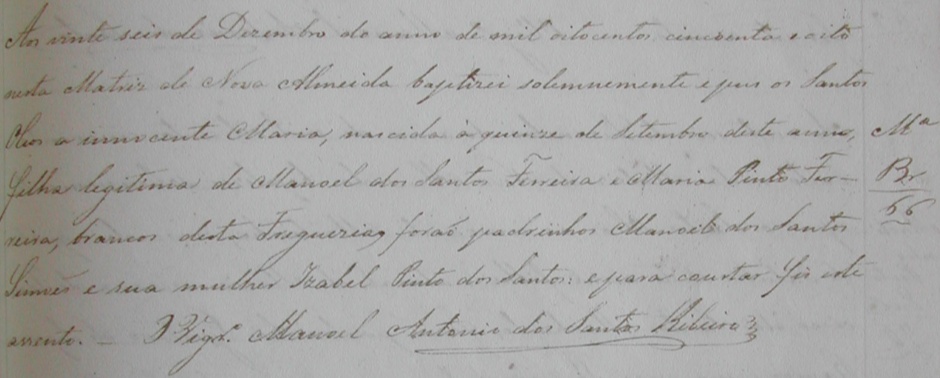 Aos vinte seis de Dezembro do anno de mil oitocentos cincoenta e oito
nesta Matriz de Nova Almeida baptizei solemnemente e pus os Santos
Oleos a innocente Maria, nascida à quinze de Setembro deste anno,
filha legitima de Manoel dos Santos Ferreira e Maria Pinto Fer-
reira, brancos desta Freguezia, foraõ padrinhos Manoel dos Santos
Simões e sua mulher Izabel Pinto dos Santos: e para constar fiz este
assento. — O Vigr.º Manoel Antonio dos Santos Ribeiro
Mª
Br
66